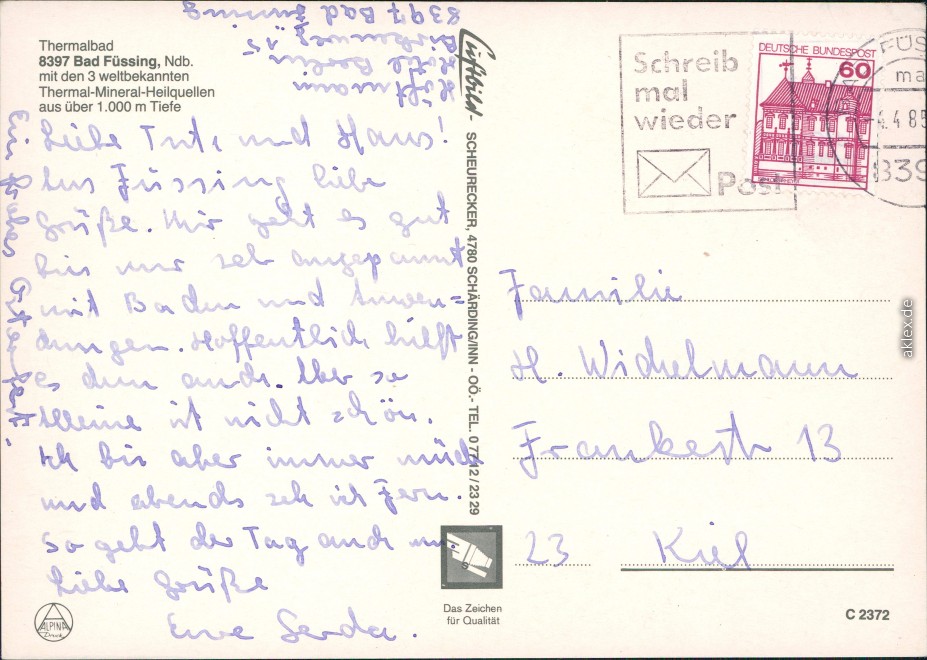 Thermalbad
8397 Bad Füssing, Ndb.
mit den 3 weltbekannten
Thermal-Mineral-Heilquellen
aus über 1.000 m Tiefe
8397 Bad Füssing
15
Hotel
Liebe Tute und Hans!
Aus Füssing liebe
Grüße. Mir geht es gut
bin nur seh angepannt
mit Baden und Anwen=
dungen. Hoffentlich hilft
es dann auch. Aber so
alleine ist nicht schön.
Ich bin aber immer müde
und abends seh ich Fern.
So geht der Tag auch um.
Liebe Grüße
Eure Gerda.
Ein frohes Osterfest!
Luftbild- SCHEURECKER, 4780 SCHÄRDING/INN - OÖ.- TEL. 0 77 12 / 23 29
Schreib
mal
wieder
Post
DEUTSCHE BUNDESPOST
60
FÜS
ma
4.4.85
839
Familie
H. Wichelmann
Frankestr 13
23 Kiel
Das Zeichen
für Qualität
ALPINA
Druck
C 2372
akpool.de